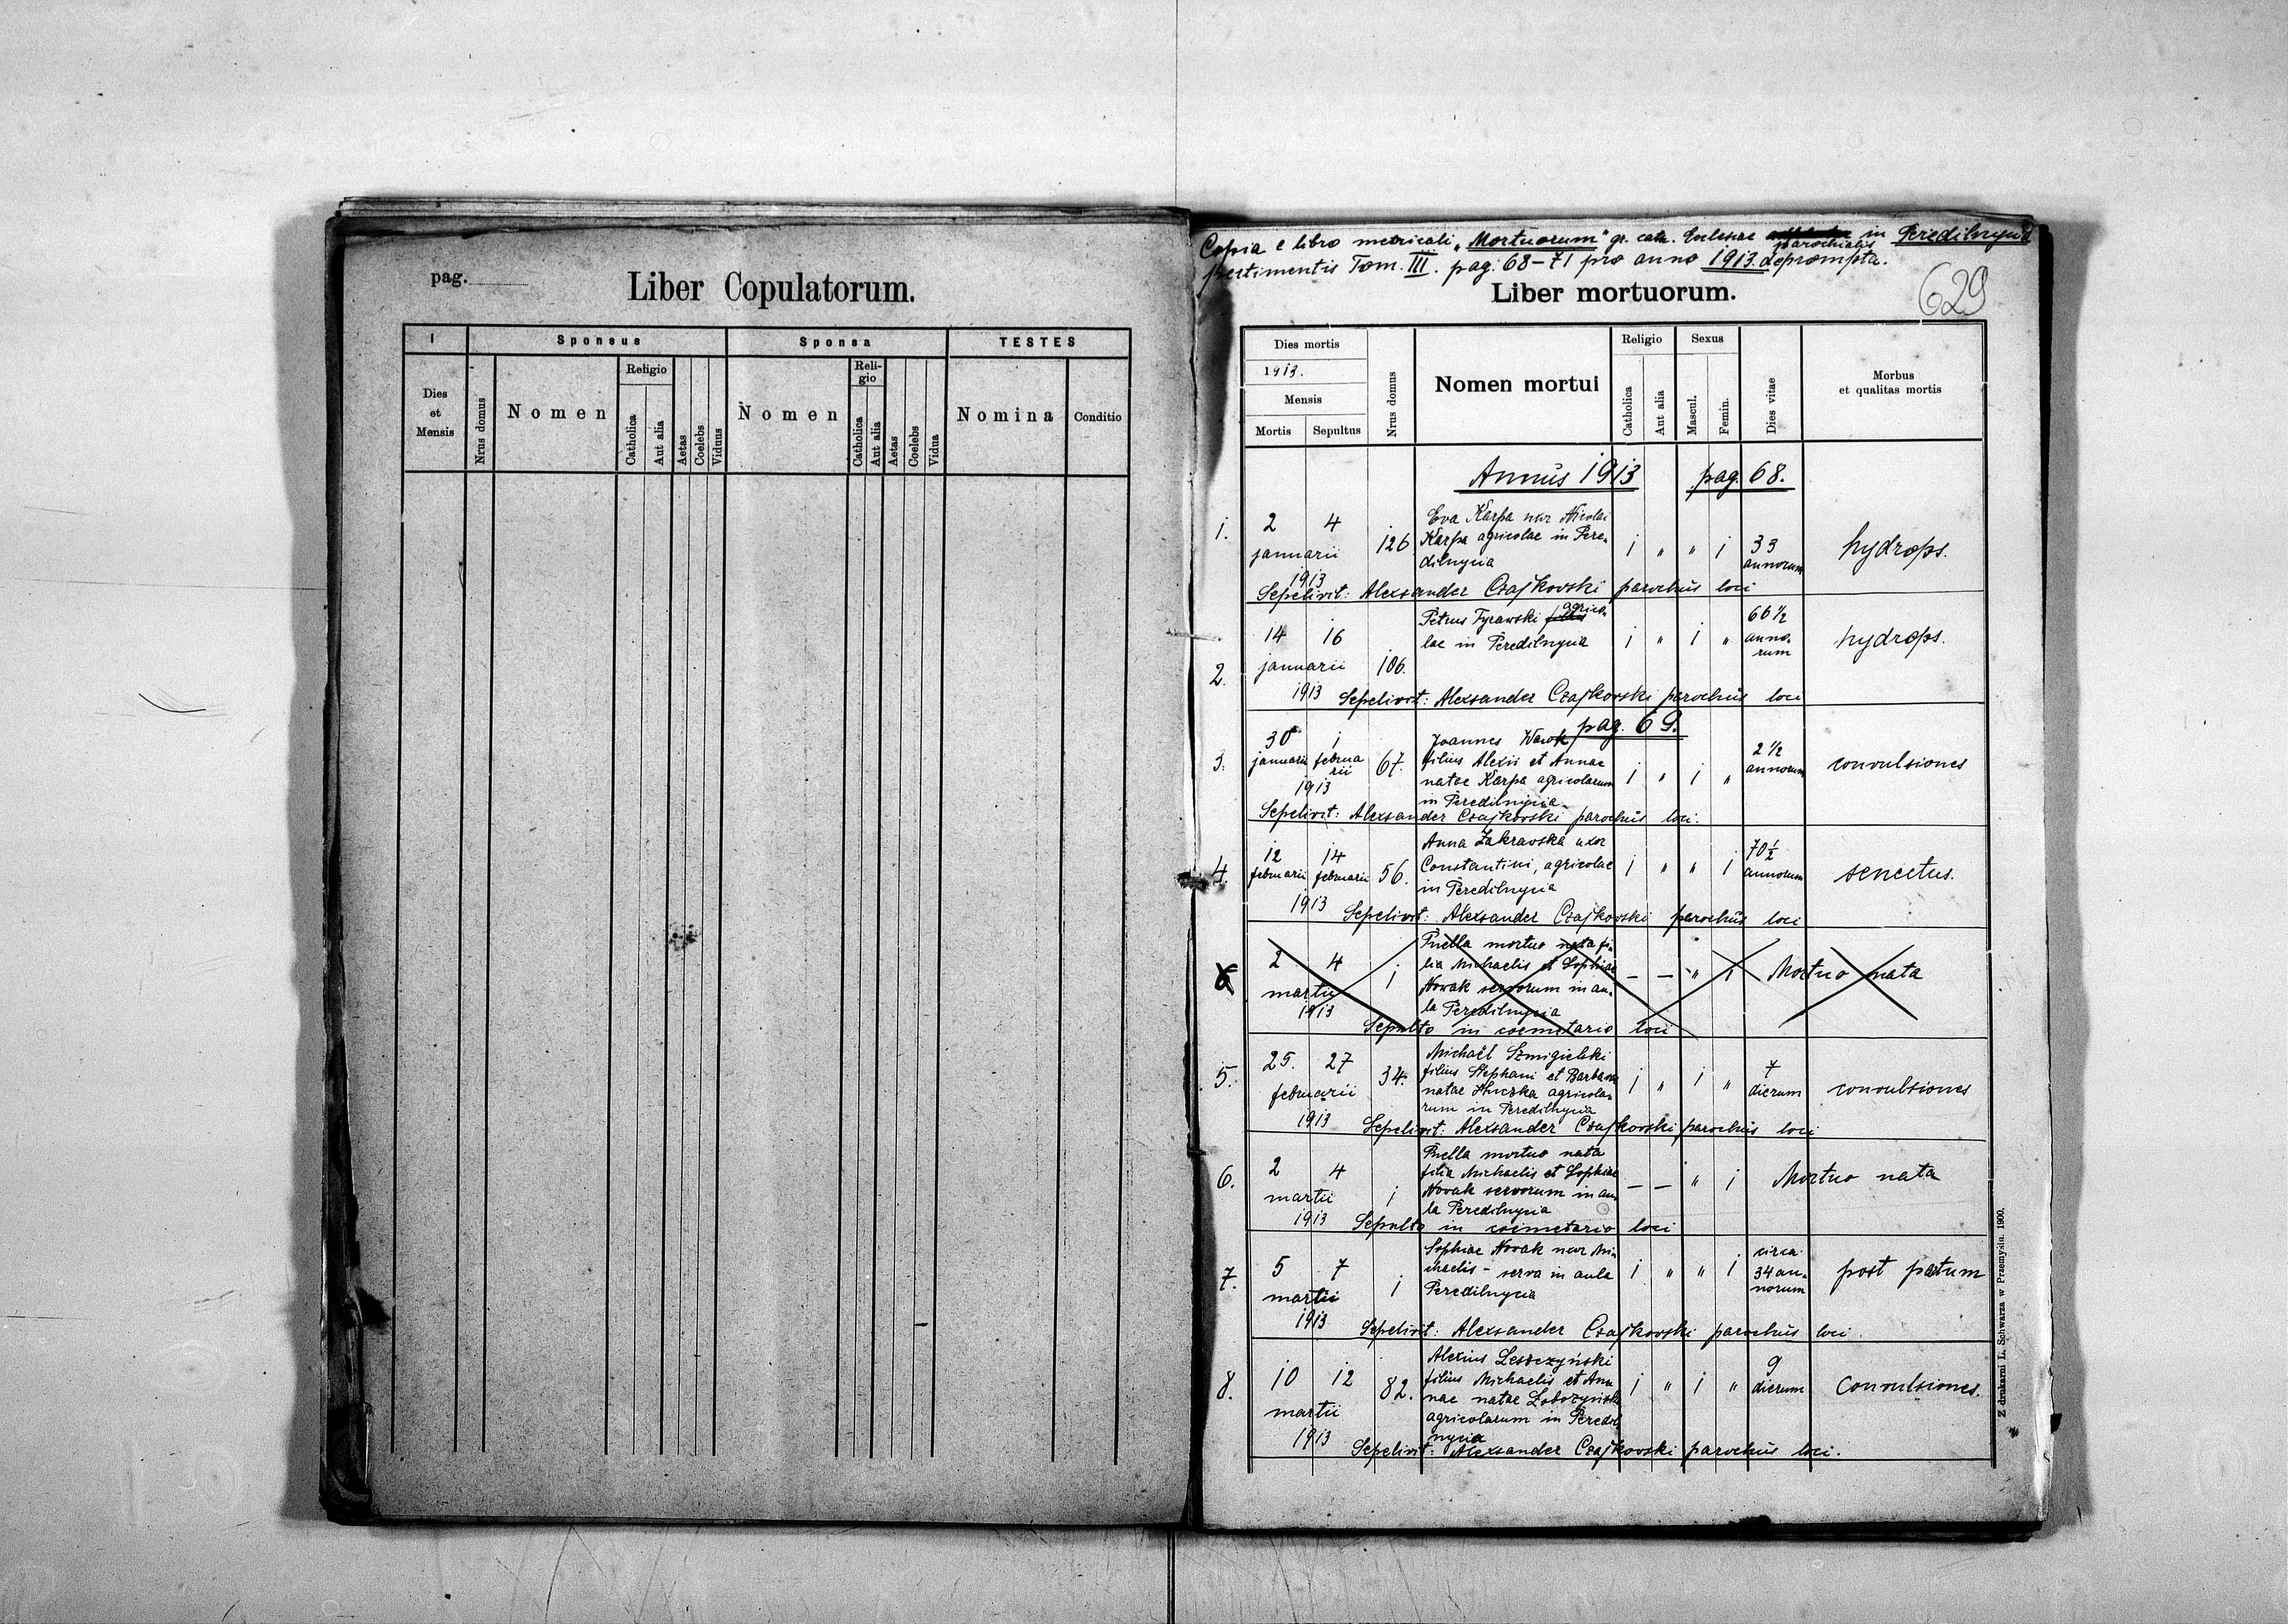 pag.
Liber Copulatorum.
I
Sponsus
Sponsa
TESTES
Dies et Mensis
Nrus domus
Nomen
Religio
Catholica
Aut alia
Aetas
Coelebs
Viduus
Nomen
Reli-
gio
Catholica
Aut alia
Aetas
Coelebs
Vidua
Nomina
Conditio
Copia e libro metricali „Mortuorum" gr. cath. Ecclesiae parochialis in Peredilnycia
pertimentis Tom. III. pag. 68-71 pro anno 1913. deprompta.
629
Liber mortuorum.
Dies mortis
1913.
Mensis
Mortis
Sepultus
Nrus domus
Nomen mortui
Religio
Catholica
Aut alia
Sexus
Mascul.
Femin.
Dies vitae
Morbus
et qualitas mortis
Annus 1913 pag. 68.
1. 2 4 januarii 1913 126
Eva Karpa uxor Nicolai
Karpa agricolae in Pere-
dilnycia
1 " " 1 33 annorum hydrops.
Sepelivit: Alexsander Czajkovski parochus loci
2. 14 16 januarii 1913 106.
Petrus Tyrawski agrico-
lae in Peredilnycia
1 " 1 " 66 1/2 anno-
rum hydrops.
Sepelivit: Alexsander Czajkovski parochus loci
pag. 69.
3. 30 januarii 1 februa
rii 1913 67.
Joannes Wawk
filius Alexii et Annae
natae Karpa agricolarum
in Peredilnycia
1 " 1 " 2 1/2 annorum convulsiones
Sepelivit: Alexsander Czajkovski parochus loci.
4. 12 februarii 14 februarii 1913 56.
Anna Zakravska uxor
Constantini, agricolae
in Peredilnycia
1 " " 1 70 1/2 annorum senectus.
Sepelivit: Alexsander Czajkovski parochus loci
2 4 martii 1913 1
Puella mortuo nata fi-
lia Michaelis et Sophiae
Nowak servorum in au-
la Peredilnycia
— — " 1 Mortuo nata
Sepulto in coemetario loci
5. 25. 27 februarii 1913 34.
Michaël Szmigielski
filius Stephani et Barbarae
natae Huczka agricola-
rum in Peredilnycia
1 " 1 " 7 dierum convulsiones
Sepelivit: Alexsander Czajkovski parochus loci
6. 2 4 martii 1913 1
Puella mortuo nata
filia Michaelis et Sophiae
Novak servorum in au-
la Peredilnycia
— — " 1 Mortuo nata
Sepulto in coemetario loci
7. 5 7 martii 1913 1
Sophiae Novak uxor Mi-
chaelis - serva in aula
Peredilnycia
1 " " 1 circa
34 an-
norum post partum
Sepelivit: Alexsander Czajkovski parochus loci.
8. 10 12 martii 1913 82.
Alexius Leszczyński
filius Michaelis et An-
nae natae
agricolarum in Peredil
nycia
1 " 1 " 9 dierum Convulsiones.
Sepelivit: Alexsander Czajkovski parochus loci.
Z drukarni L. Schwarza w Przemyślu. 1900.